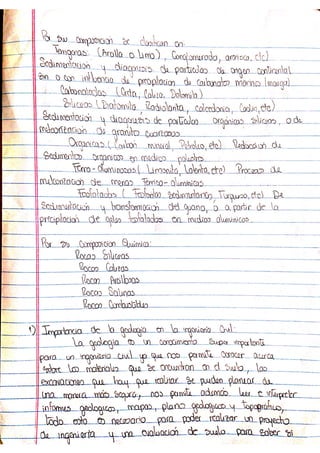 Por su composicion se clasifican en
Terrigenas: (Arcilla o limo), Conglomerado, arenisca, etc)
Sedimentacion y diagenesis de particulas de origen continental
sin o con influencia de precipitacion de carbonato marino (marga)
Carbonatadas (Creta, Caliza, Dolomita)
Siliceas (Diatomita, Radiolarita, calcedonia, Caolin, etc)
Sedimentacion y diagenesis de particulas organicas siliceas, o de
meteorizacion de granito cuarzosos
Organicas (Carbon mineral, Petroleo, etc) Reduccion de
Sedimentos organicos en medios palustres
Ferro-aluminosas (Limonita, Laterita, etc) Proceso de
meteorizacion de menas ferrico-aluminicas
Fosfatadas (Fosforitas sedimentarias, Turquesa, etc) De
Sedimentacion y transformacion del guano, o a partir de la
precipitacion de geles fosfatados en medios aluminicos.
Por su Composicion Quimica:
Rocas Siliceas
Rocas Calizas
Rocas Arcillosas
Rocas Salinas
Rocas Combustibles
1) Importancia de la geologia en la ingenieria Civil:
La geologia es un conocimiento Super importante
para un ingeniero civil ya que nos permite conocer acerca
sobre los materiales que se encuentran en el suelo, las
excavaciones que hay que realizar se pueden planear de
una manera más segura, nos permite además leer e interpretar
informes geologicos, mapas, plano geologicos y topograficos,
todo esto es necesario para poder realizar un proyecto
de ingenieria y una evaluacion de suelo para saber si